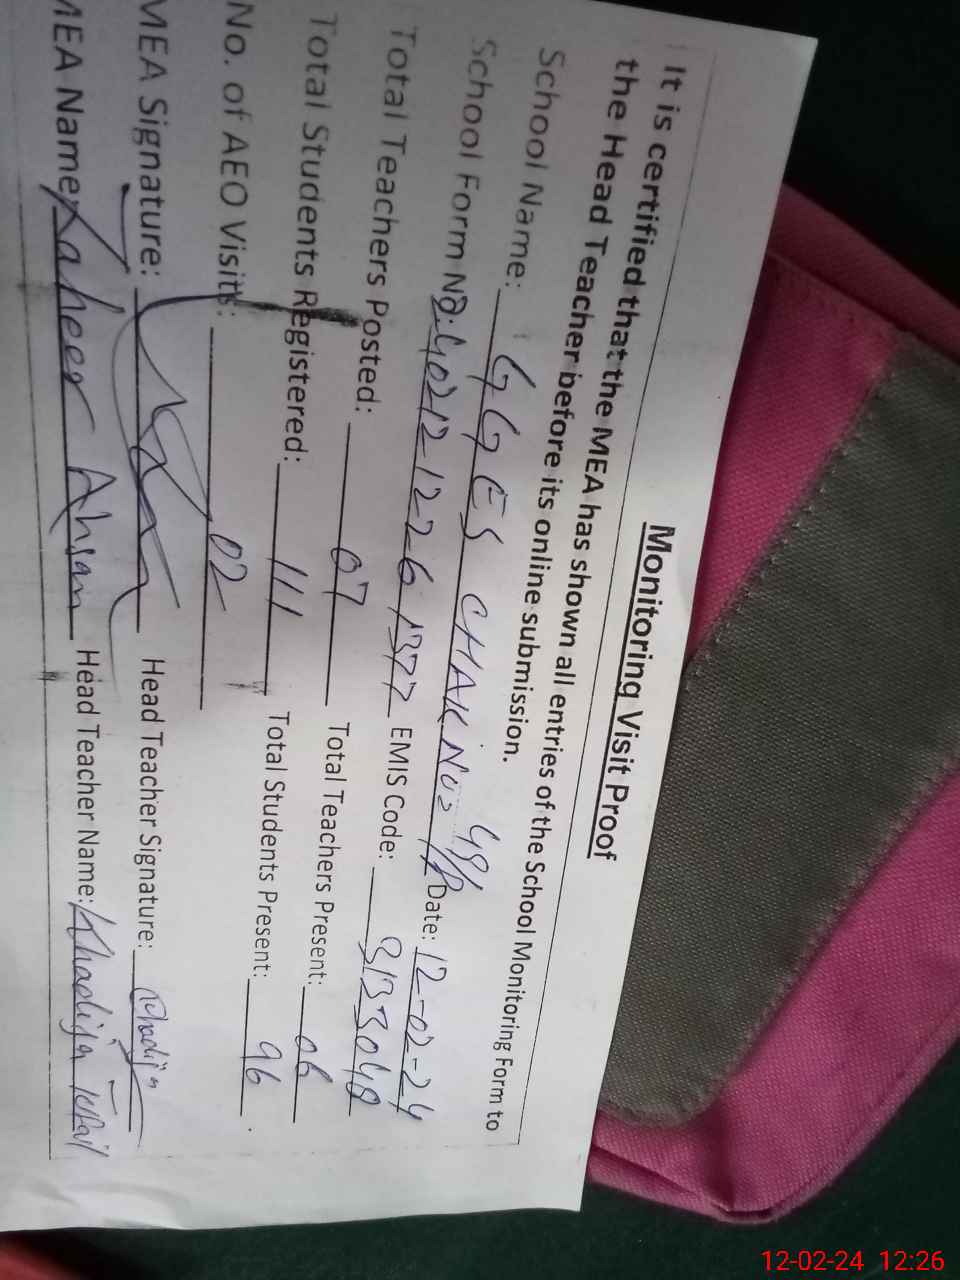 Monitoring Visit Proof
It is certified that the MEA has shown all entries of the School Monitoring Form to
the Head Teacher before its online submission.
School Name: GGES CHAK NO= 49/ Date: 12-02-24
School Form No: 4021212261377 EMIS Code: 3133048
Total Teachers Posted: 07 Total Teachers Present: 06
Total Students Registered: 111 Total Students Present: 96
No. of AEO Visits: 02
MEA Signature: Head Teacher Signature: Khadija
MEA Name: Zaheer Ahsan Head Teacher Name: Khadija
12-02-24 12:26